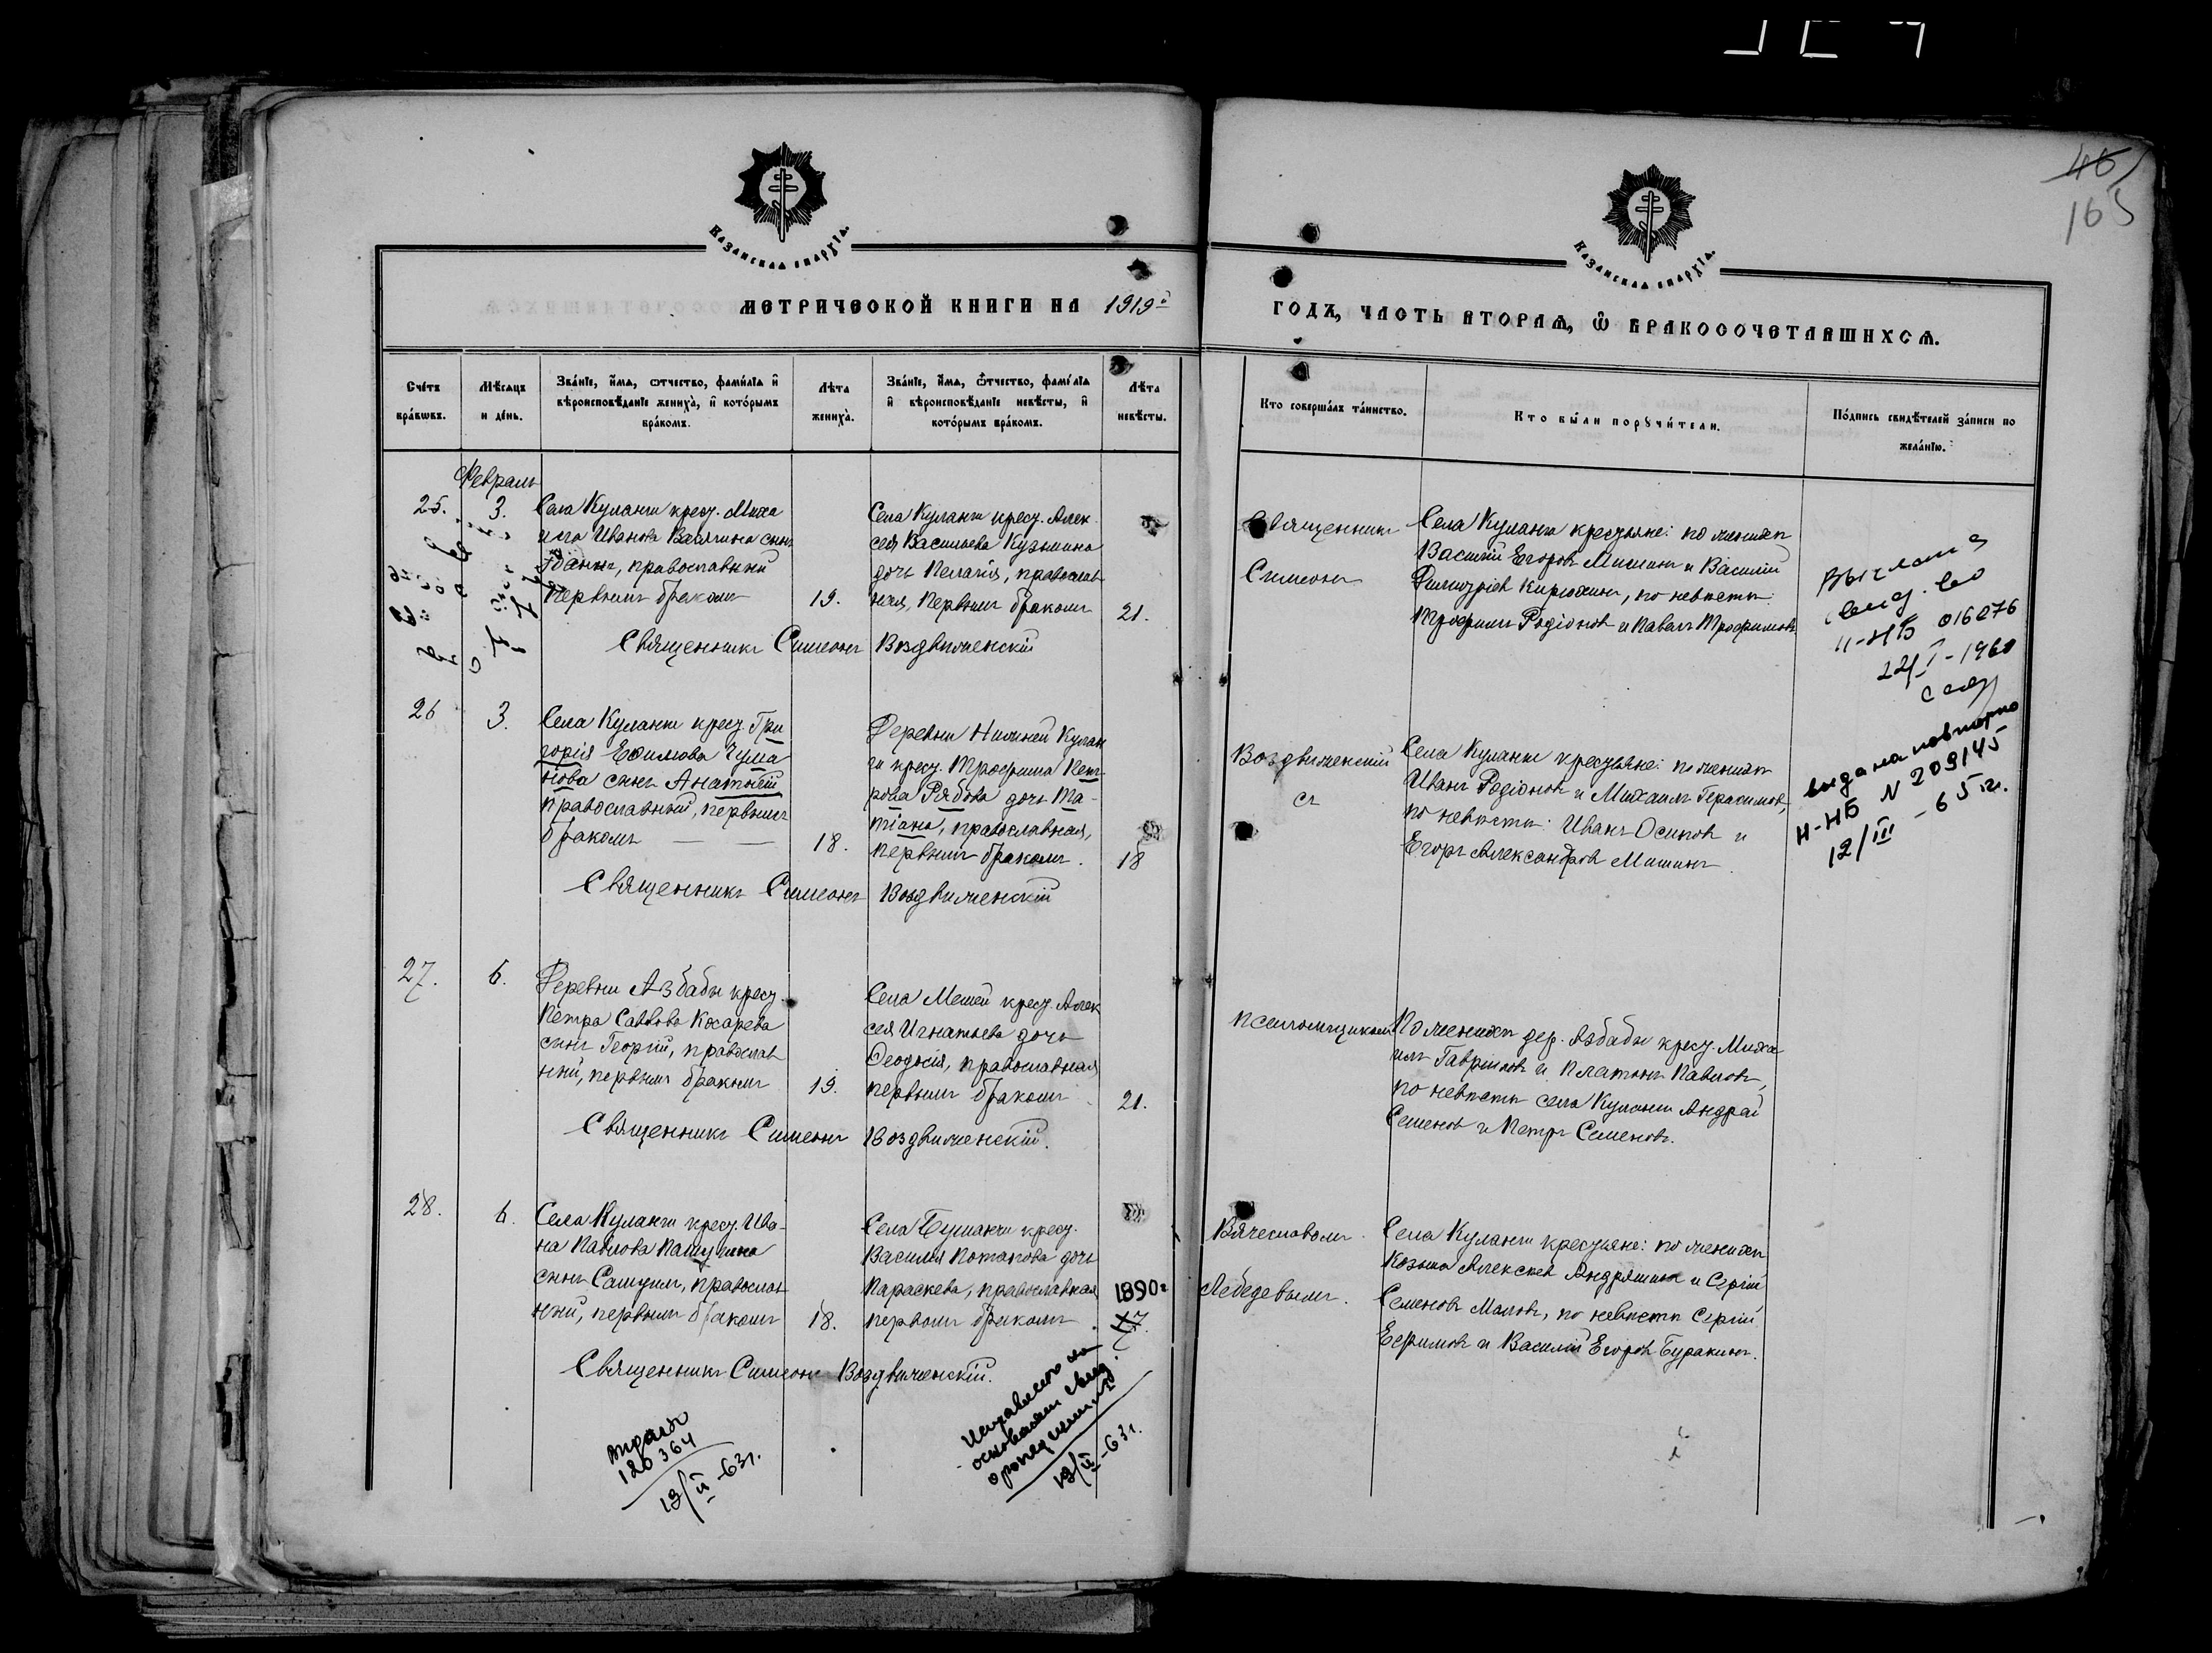 46
165
Казанская епархїа.
Казанская епархїа.
МЕТРИЧЕСКОЙ КНИГИ НА 1919й
ГОДЪ, ЧАСТЬ ВТОРАѦ, Ѿ БРАКОСОЧЕТАВШИХСѦ.
Счётъ браковъ.
Мѣсяцъ и день.
Званїе, имя, отчество, фамилїа и вѣроисповѣданїе жениха, и которымъ бракомъ.
Лѣта жениха.
Званїе, имя, отчество, фамилїа и вѣроисповѣданїе невѣсты, и которымъ бракомъ.
Лѣта невѣсты.
Кто совершалъ таинство.
Кто были поручители.
Подпись свидѣтелей записи по желанїю.
Февраль
25.
3.
Села Куланги крест. Миха
ила Иванова Ванягина сынъ
Іоаннъ, православный
первымъ бракомъ
19.
Села Куланги крест. Алек
сея Васильева Кузьмина
дочь Пелагія, православ
ная, первымъ бракомъ
21.
Священникъ Симеонъ Воздвиженскій
Священникъ
Симеонъ
Села Куланги крестьяне: по женихѣ
Василій Егоровъ Мишинъ и Василій
Димитріевъ Кирюхинъ, по невѣстѣ:
Трофимъ Родіоновъ и Павелъ Трофимовъ
Выслано
свид. во
II-НБ 016076
22/I-1960
26
3.
Села Куланги крест. Гри
горія Ефимова Чума
нова сынъ Анатолій
православный, первымъ
бракомъ — —
18.
Деревни Нижней Кулан
ги крест. Трофима Пет
рова Рябова дочь Та-
тіана, православная,
первымъ бракомъ.
18
Священникъ Симеонъ Воздвиженскій
Воздвиженскій
съ
Села Куланги крестьяне: по женихѣ
Иванъ Родіоновъ и Михаилъ Герасимовъ,
по невѣстѣ: Иванъ Осиповъ и
Егоръ Александровъ Мишинъ.
выдана повторно
II-НБ N 209145
12/III -65 г.
27.
6.
Деревни Азбабы крест.
Петра Саввова Косарева
сынъ Георгій, православ
ный, первымъ бракомъ
19.
Села Мемей крест. Алек
сея Игнатьева дочь
Ѳеодосія, православная
первымъ бракомъ
21.
Священникъ Симеонъ Воздвиженскій.
псаломщикомъ
По женихѣ дер. Азбабы крест. Миха
илъ Гавриловъ и Платонъ Павловъ,
по невѣстѣ села Куланги Андрей
Семеновъ и Петръ Семеновъ.
28.
6.
Села Куланги крест. Ива-
на Павлова Пашушина
сынъ Самуилъ, православ
ный, первымъ бракомъ
18.
Села Бушанчи крест.
Василія Потапова дочь
Параскева, православная
первымъ бракомъ.
1890г
17.
Священникъ Симеонъ Воздвиженскій.
Вячеславомъ
Лебедевымъ.
Села Куланги крестьяне: по женихѣ
Козьма Алексѣевъ Андряшинъ и Сергій
Семеновъ Маловъ, по невѣстѣ Сергій
Ефимовъ и Василій Егоровъ Буракинъ.
выдано
120364
13/II-63г.
Исправлено на
основании свид.
о рождении
13/II-63г.